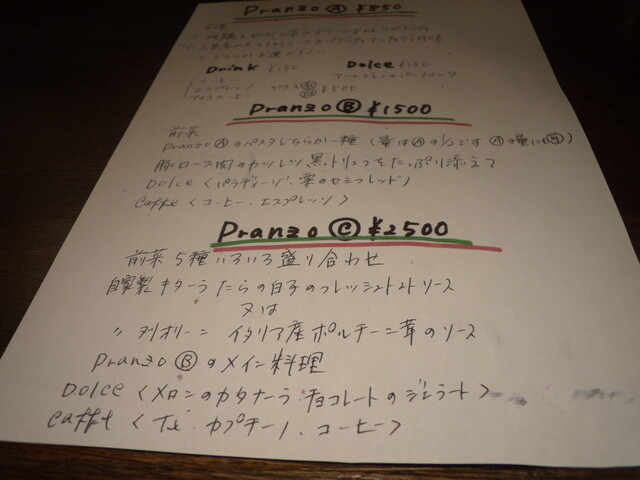 Pranzo Ⓐ ¥850
前菜
Drink ¥150 Dolce ¥150
コーヒー
エスプレッソ
アイスコーヒー ¥500
Pranzo Ⓑ ¥1500
前菜
Pranzo Ⓐのパスタどちらか一種 (量はⒶの½です Ⓐの量には
豚ロース肉のカツレツ 黒トリュフをたっぷり添えて
Dolce く パラディーゾ、栗のセミフレッド 〉
Caffe く コーヒー、エスプレッソ 〉
Pranzo Ⓒ ¥2500
前菜 5種いろいろ盛り合わせ
自家製キターラ たらの白子のフレッシュトマトソース
又は
〃 タリオリーニ イタリア産ポルチーニ茸のソース
Pranzo Ⓑのメイン料理
Dolce く メロンのカタナーラ、チョコレートのジェラート 〉
Caffe く Te、カプチーノ、コーヒー 〉